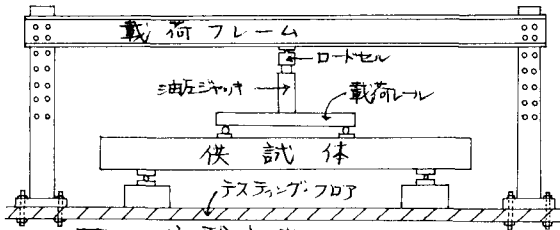 載荷フレーム
ロードセル
油圧ジャッキ
載荷レール
供試体
テスティング・フロア